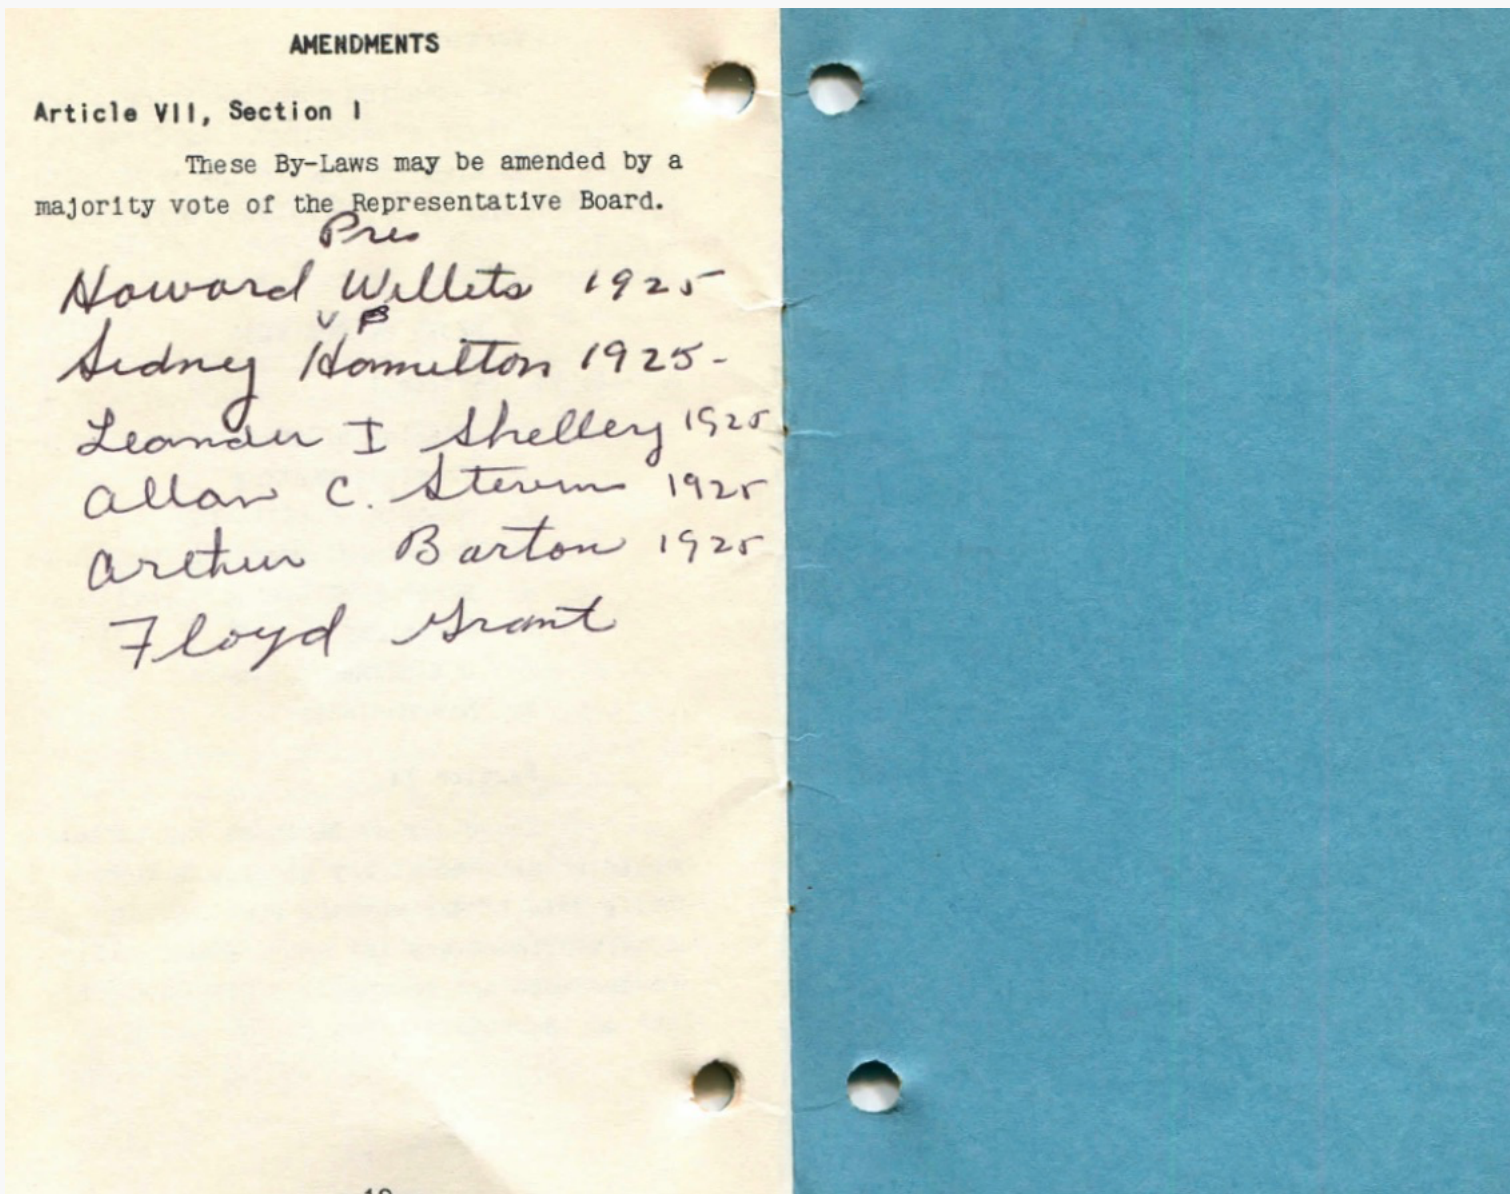 AMENDMENTS
Article VII, Section I
These By-Laws may be amended by a
majority vote of the Representative Board.
Pres
Howard Willets 1925
V P
Sidney Hamilton 1925-
Leander I Shelley 1925
Allan C. Stevens 1925
Arthur Barton 1925
Floyd Grant